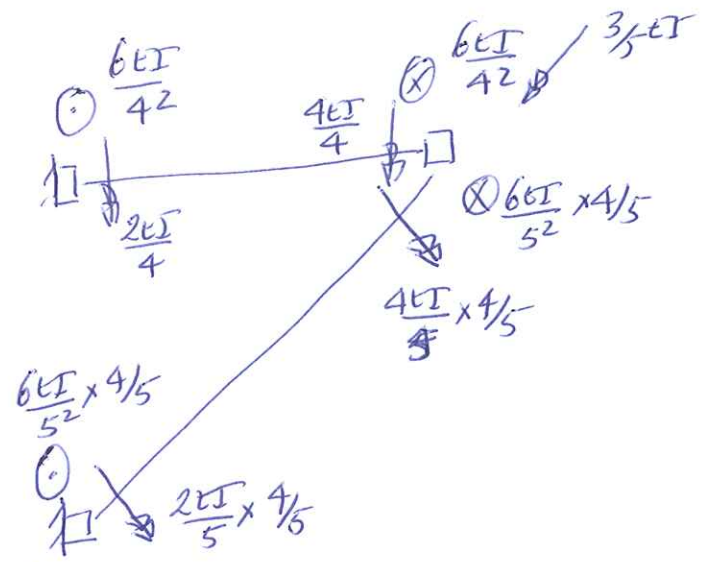 6EI/4² 6EI/4² 3/5 EI
⊙ ⊗
4EI/4
2EI/4
⊗ 6EI/5² × 4/5
4EI/5 × 4/5
6EI/5² × 4/5
⊙
2EI/5 × 4/5